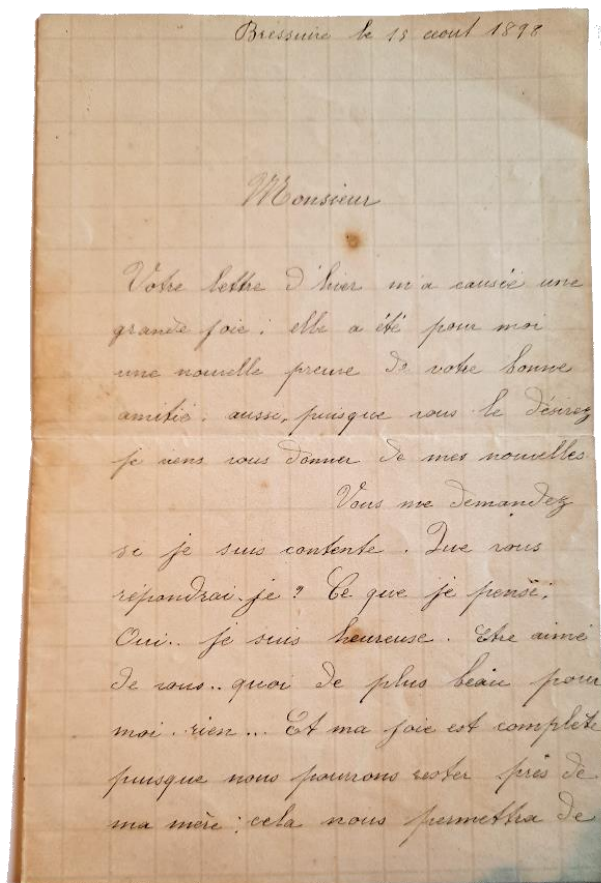 Bressuire le 15 aout 1898
Monsieur
Votre lettre d'hier m'a causée une
grande joie ; elle a été pour moi
une nouvelle preuve de votre bonne
amitié. aussi, puisque vous le désirez
je viens vous donner de mes nouvelles.
Vous me demandez
si je suis contente. Que vous
répondrai-je ? Ce que je pense.
Oui.. je suis heureuse. Etre aimé
de vous.. quoi de plus beau pour
moi. rien... Et ma joie est complète
puisque nous pourrons rester près de
ma mère ; cela nous permettra de